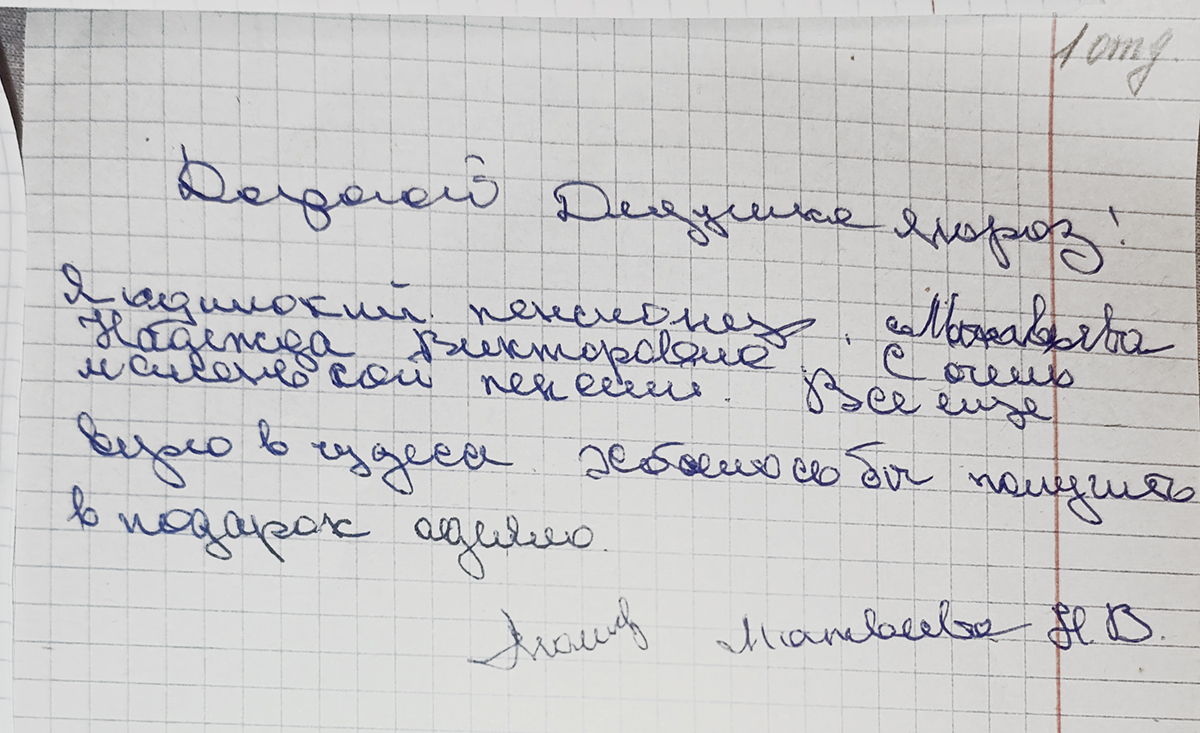 1 отд.
Дорогой Дедушка мороз!
Я одинокий пенсионер. Матвеева
Надежда Викторовна. С очень
маленькой пенсией. Все еще
верю в чудеса. Хотелось бы получить
в подарок одеяло.
Матвеева Н. В.